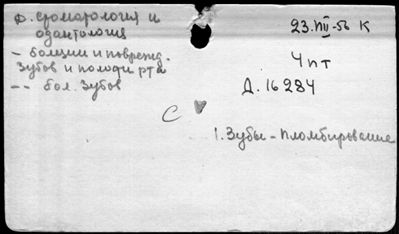 Ф. Стоматология и
одонтология
– болезни и поврежд.
зубов и полости рта
–– бол. зубов
23.VIII-56 К
4 пт
Д. 16284
С
1. Зубы – Пломбирование